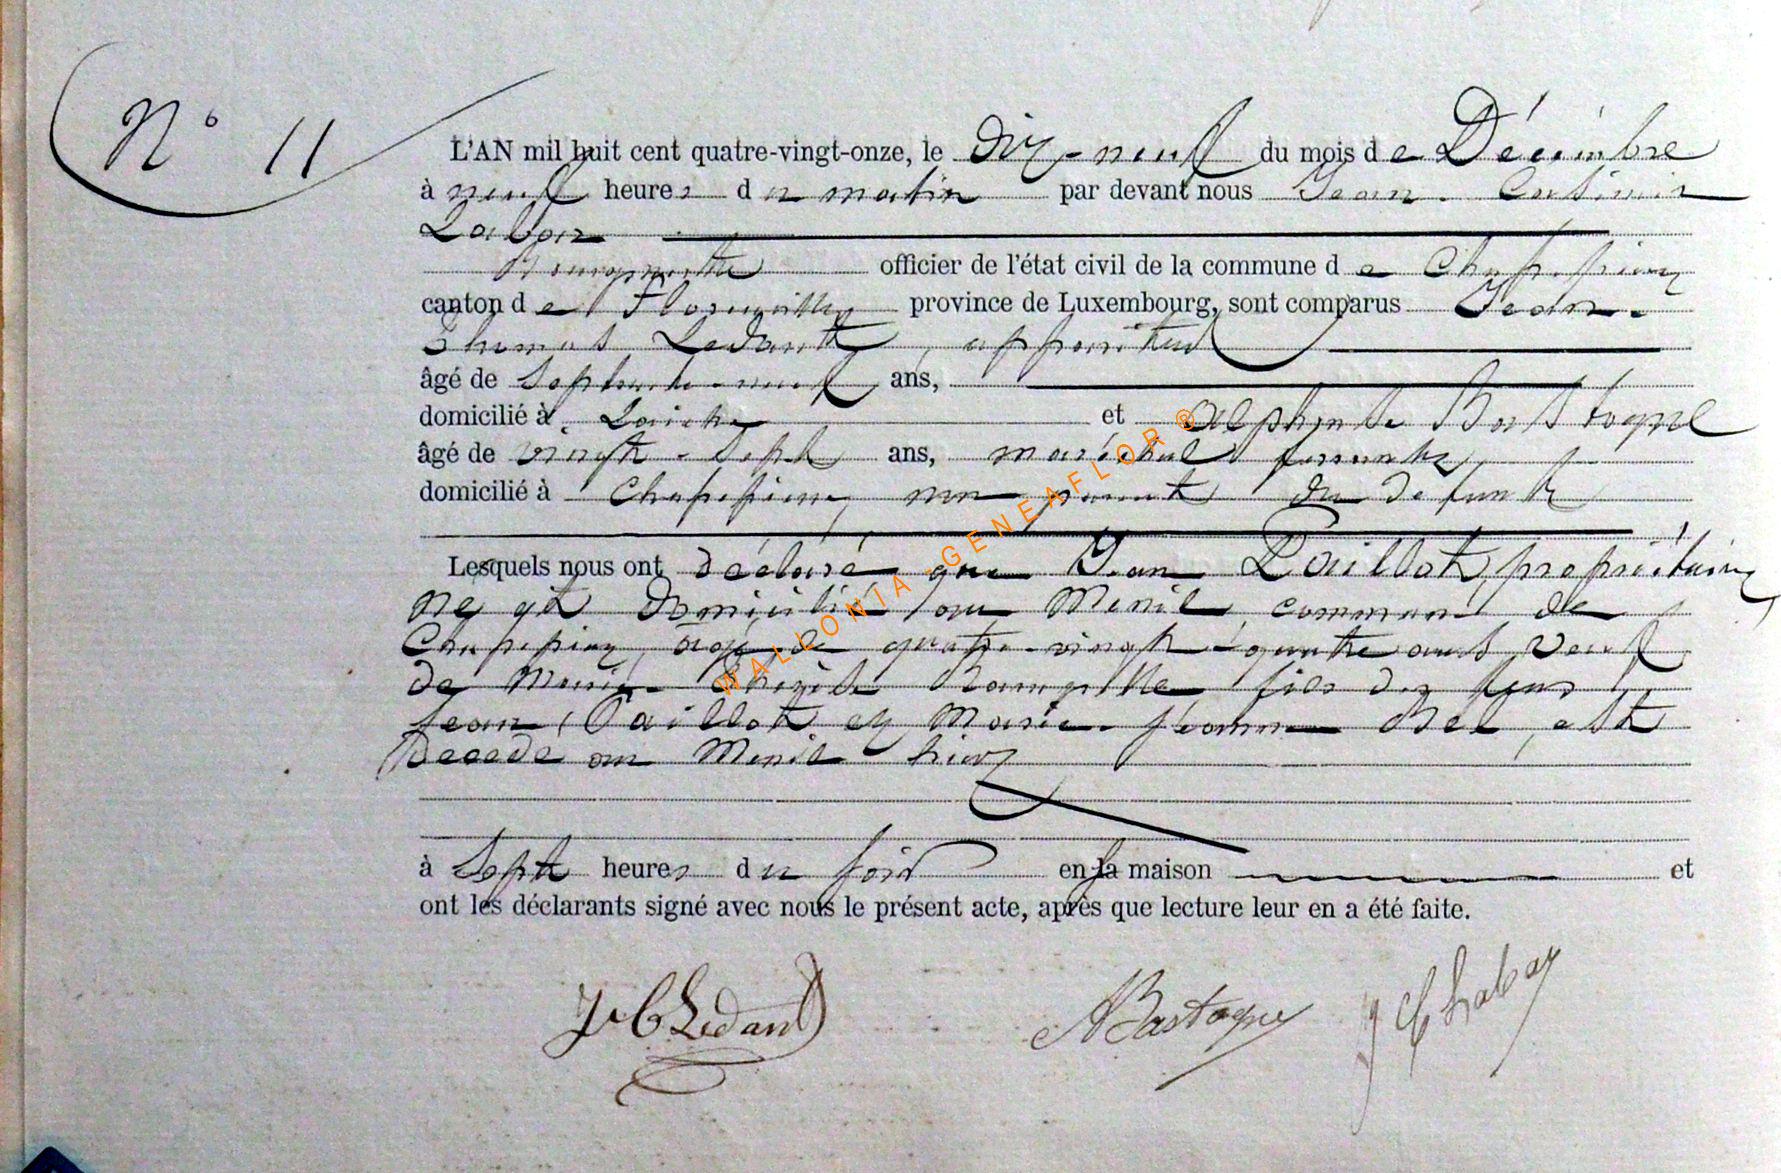 N° 11
L'AN mil huit cent quatre-vingt-onze, le Dix-neuf du mois de Décembre
à neuf heures du matin par devant nous Jean. Casimir
Labar
Bourgmestre officier de l'état civil de la commune de Chassepierre
canton de Florenville province de Luxembourg, sont comparus Jean.
Thomas Ledant, appariteur
âgé de Septante-neuf ans,
domicilié à Laiche et Alphonse Bastogne
âgé de vingt-sept ans, maréchal ferrant
domicilié à Chassepierre, non parents du defunt
Lesquels nous ont déclaré que Jean Paillot, propriétaire
né et domicilié au Menil commune de
Chassepierre, agé de quatre-vingt-quatre ans veuf
de Marie-Thérèse fils des feus
Jean Paillot et Marie-Jeanne Bel, est
Decede au Menil hier
à Sept heures du soir en la maison et
ont les déclarants signé avec nous le présent acte, après que lecture leur en a été faite.
Ledant ABastogne
WALLONIA GENEAFLOR ®